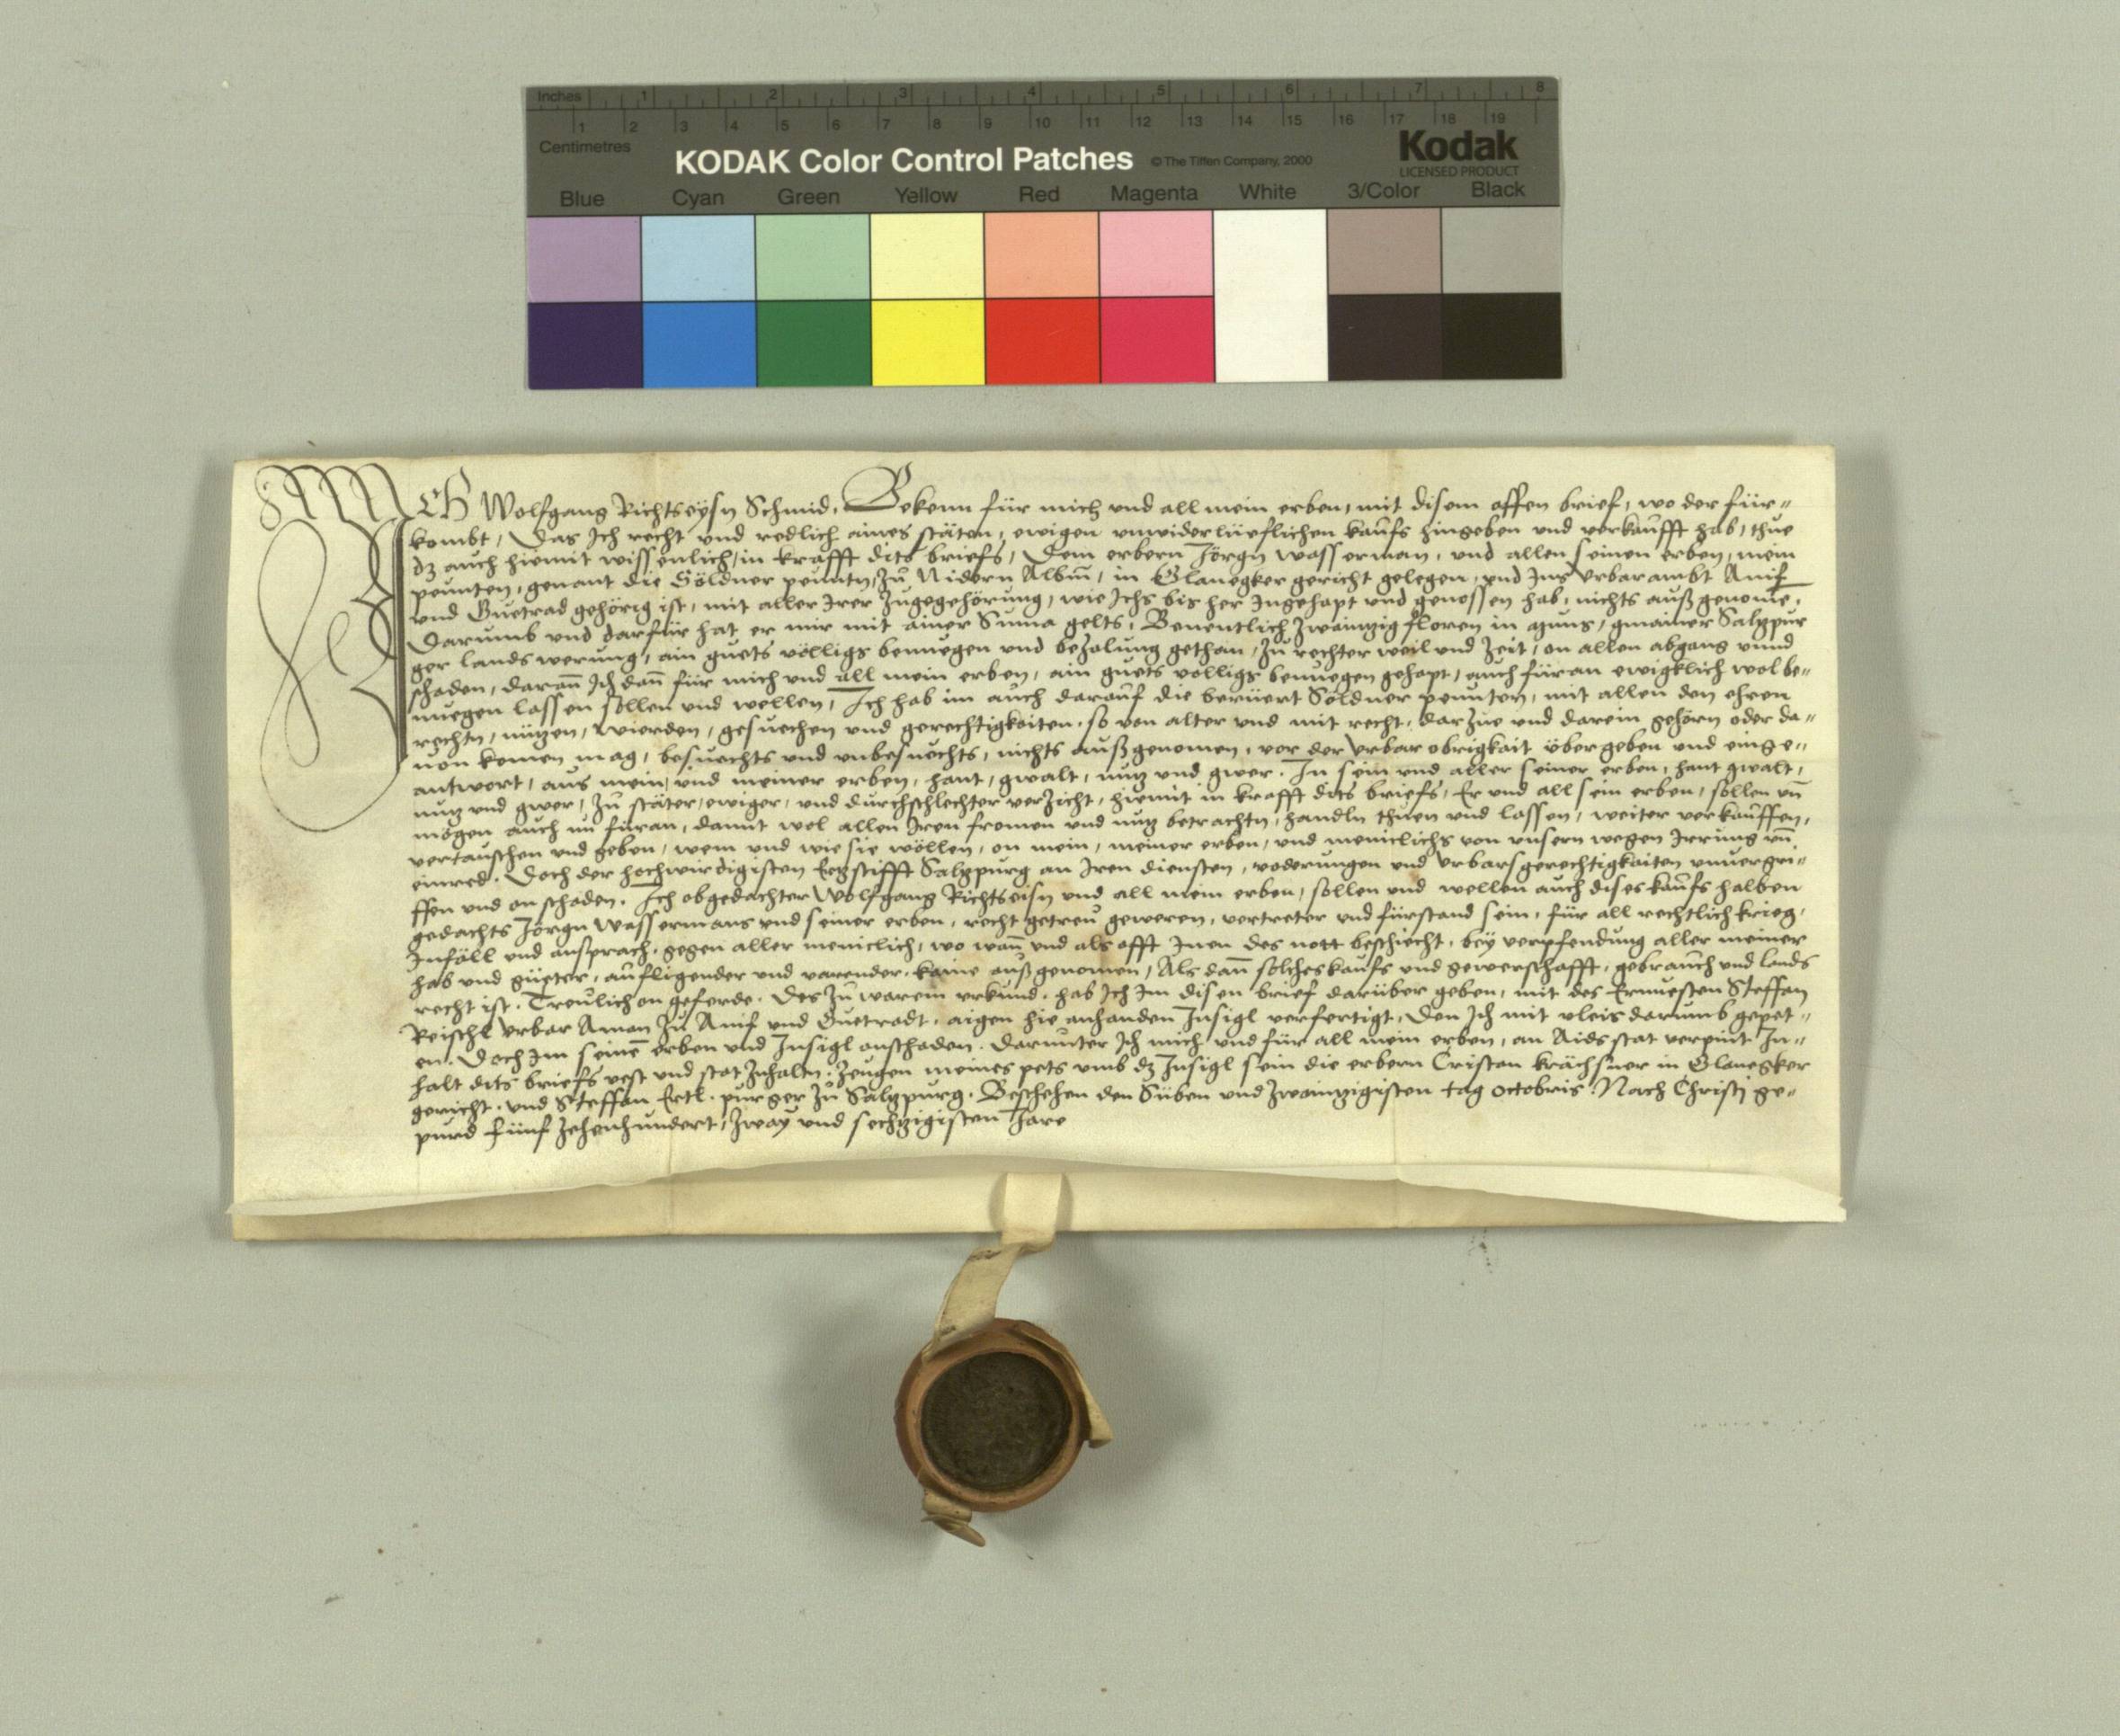 Inches 1 2 3 4 5 6 7 8
1 2 3 4 5 6 7 8 9 10 11 12 13 14 15 16 17 18 19
Centimetres
KODAK Color Control Patches © The Tiffen Company, 2000 Kodak
LICENSED PRODUCT
Blue Cyan Green Yellow Red Magenta White 3/Color Black
ICH Wolfgang Richtseysn Schmid, Bekenn für mich und all mein erben, mit disem offen brief, wo der für"
kombt, Das Ich recht und redlich aines stäten, ewigen unwiderlüeflichen kaufs hingeben und verkaufft hab, thue
dz auch hiemit wissenlich, in krafft dits briefs, Dem erbern Jörgn wasserman, und allen seinen erben, mein
peunten, genant die Söldner peuntn, zu Nidern Albm, in Glanegker gericht gelegen, und Ins Urbarambt Anif
und Guetrad gehörig ist, mit aller Irer zugegehörung, wie Ichs bis her Ingehapt und genossen hab, nichts außgenome,
Darumb und darfür hat er mir mit ainer Suma gelts, Benentlich zwaintzig floren in muns, gmainer Saltzpur
ger lands werung, ain guets völligs benuegen und bezalung gethan, zu rechter weil und zeit, on allen abgang unnd
schaden, daran Ich dan für mich und all mein erben, ain guets volligs benuegen gehapt, auch füran ewigklich wol be"
nuegen lassen sollen und wellen, Ich hab im auch darauf die berüert Söldner peunten, mit allen den ehren
rechtn, nützen, wierden, gesuechen und gerechtigkaiten, so von alter und mit recht, darzue und darein gehörn oder da"
von komen mag, besuechts und unbesuechts, nichts außgenomen, vor der Urbar obrigkait übergeben und einge"
antwort, aus mein, und meiner erben, hant, gwalt, nutz und gwer. In sein und aller seiner erben, hant gwalt,
nutz und gwer, zu stäter, ewiger, und durchschlechter verzicht, hiemit in krafft dits briefs, Er und all sein erben, sollen un
mögen auch nu füran, damit wol allen Iren fromen und nutz betrachtn, handln thuen und lassen, weiter verkauffen,
vertauschen und geben, wem und wie sie wöllen, on mein, meiner erben, und meniclichs von unsern wegen Irrung un
einred. Doch der hochwirdigisten Ertzstifft Saltzpurg an Iren diensten, voderungen und Urbarsgerechtigkaiten unvergri"
ffen und on schaden. Ich obgedachter Wolfgang Richtseisn und all mein erben, sollen und wellen auch dises kaufs halben
gedachts Jörgn Wassermans und seiner erben, recht getreu geweren, vertreter und fürstand sein, für all rechtlich krieg,
Infäll und ansprach, gegen aller meniclich, wo wan und als offt Inen des nott beschiecht, bey verpfendung aller meiner
hab und güeter, aufligender und varender, kaine außgenomen, Als dan solches kaufs und gewerschafft, gebrauch und lands
recht ist. Treulich on geferde. Des zu warem urkund, hab Ich Im disen brief darüber geben, mit des Ernvesten Steffan
Reischl Urbar Aman zu Anif und Guetradt, aigen hie anhanden Insigl verfertigt, Den Ich mit vleis darumb gepet"
en. Doch Im seinen erben und Insigl onschaden. Darunter Ich mich und für all mein erben, an Aidsstat verpint In"
halt dits briefs vest und stat zuhaltn. Zeugen meines pets umb dz Insigl sein die erbern Cristan krächsner in Glanegker
gericht. und Steffan Ertl. purger zu Saltzpurg. Beschehen den Süben und zwaintzigisten tag Octobris. Nach Christi ge"
purd fünfzehenhundert, zway und sechtzigisten Jare